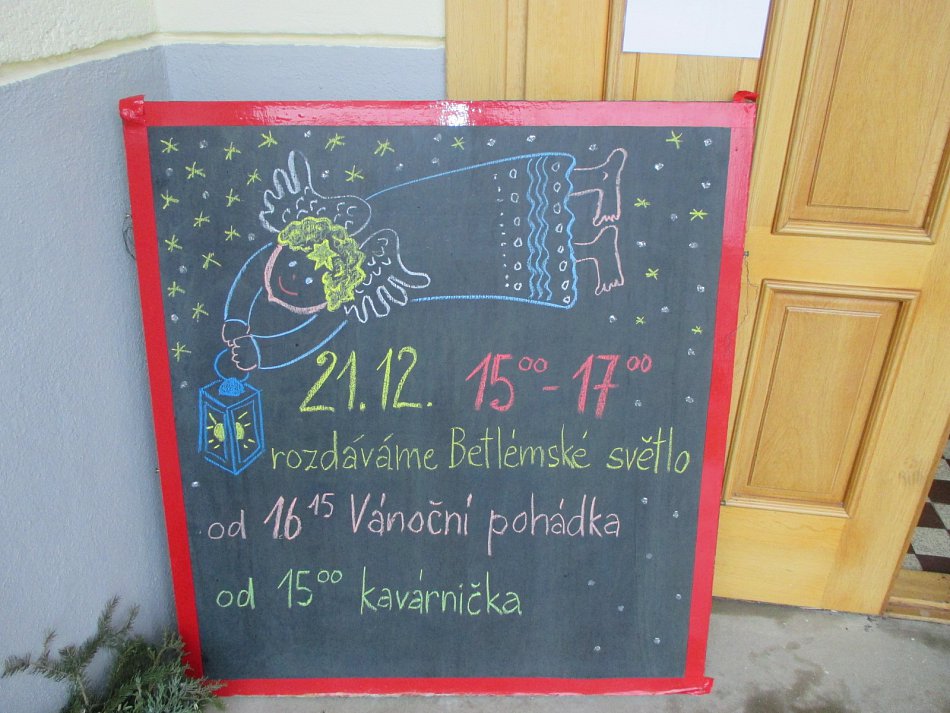 21.12. 15⁰⁰-17⁰⁰
rozdáváme Betlémské světlo
od 16¹⁵ Vánoční pohádka
od 15⁰⁰ kavárnička